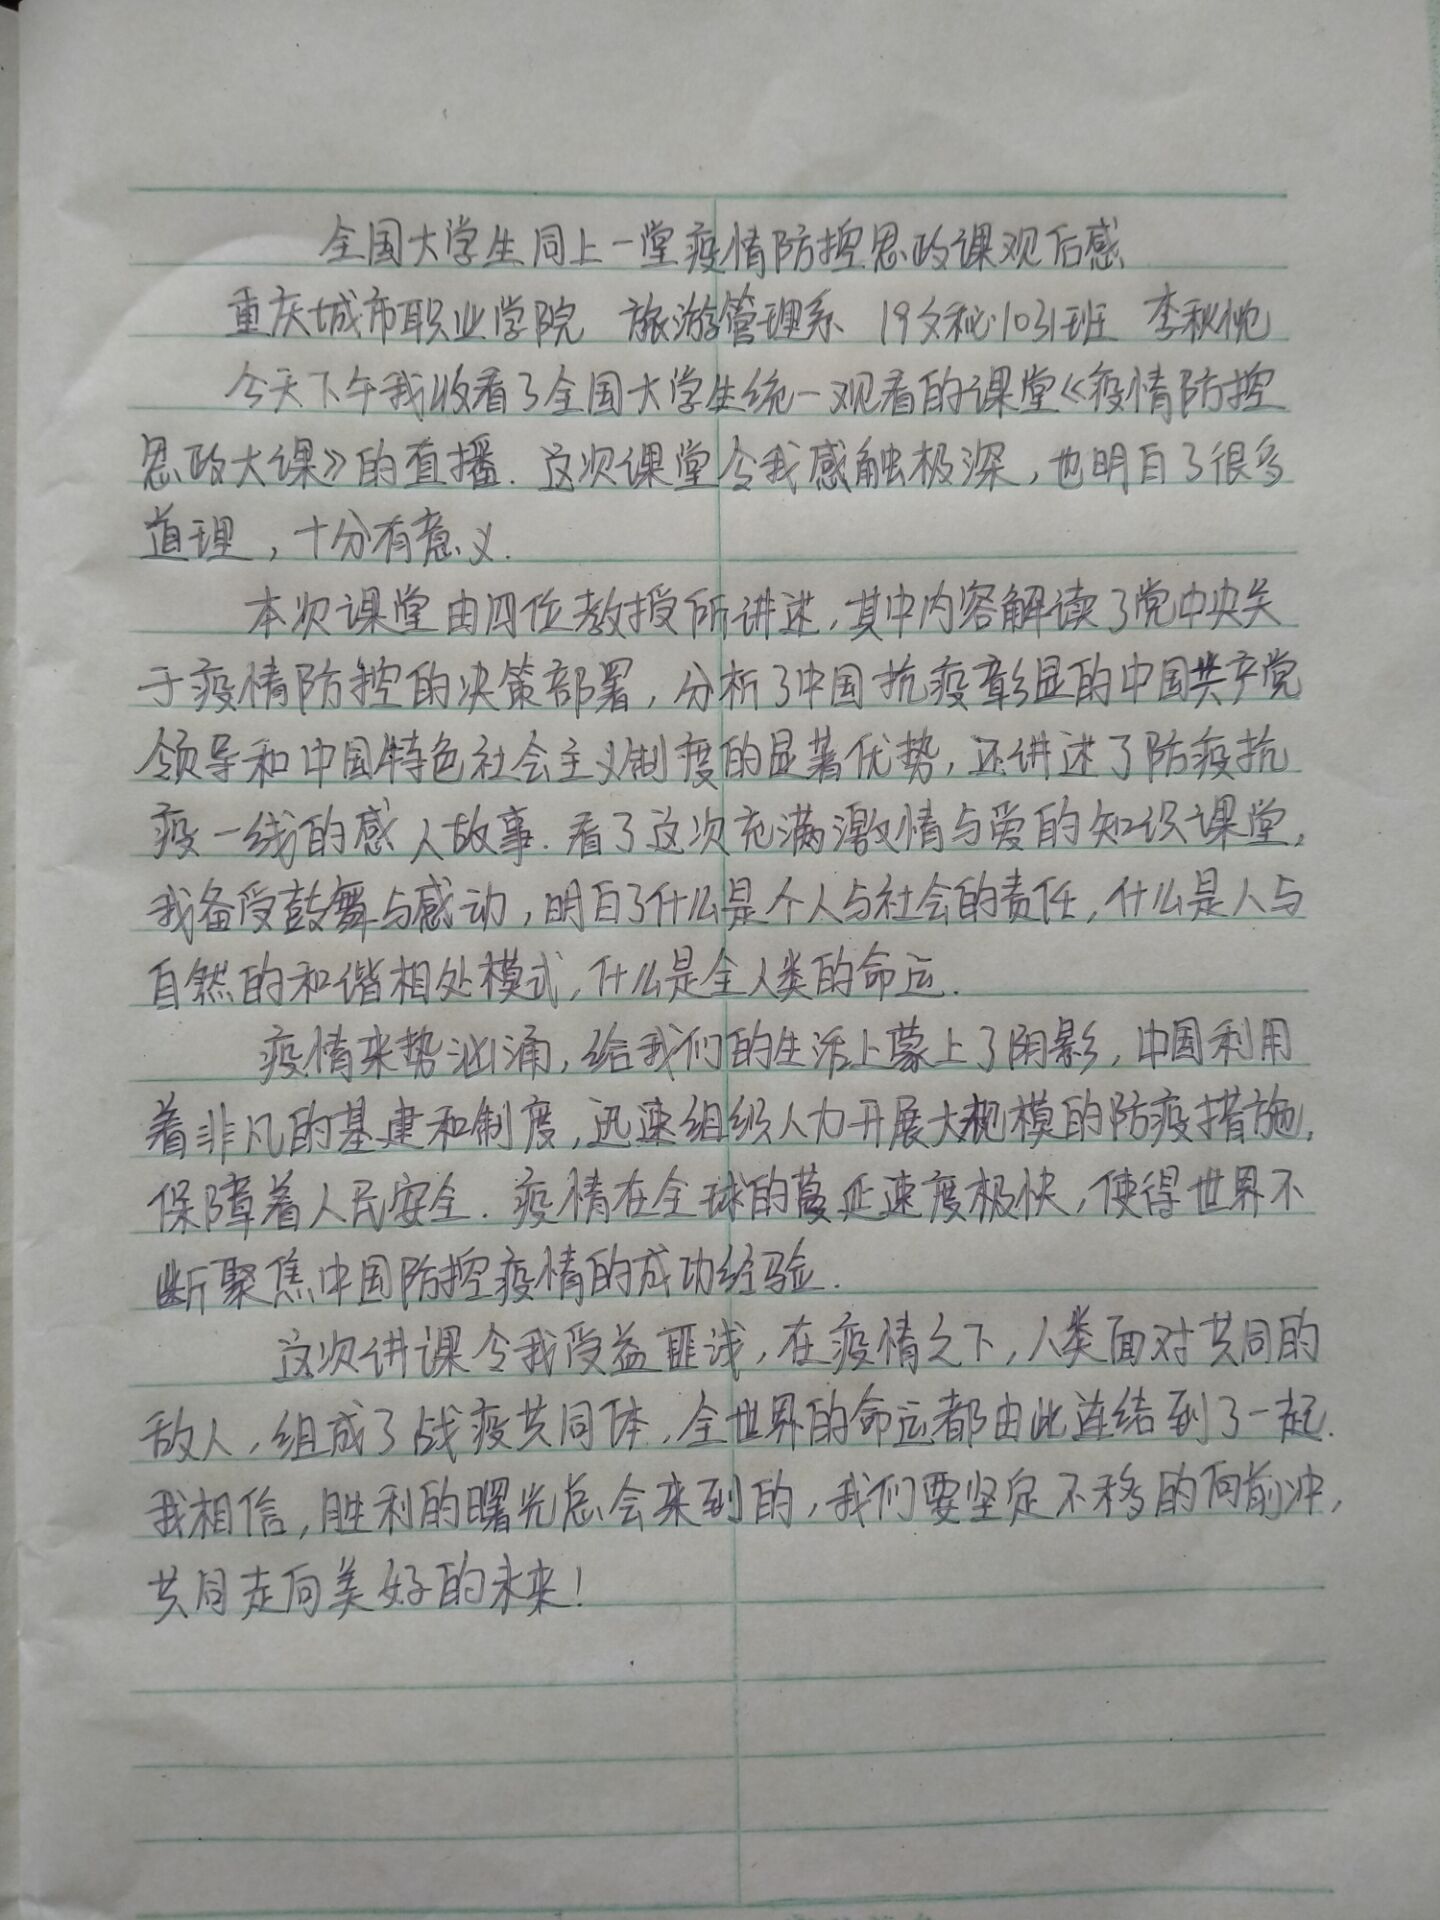 全国大学生同上一堂疫情防控思政课观后感
重庆城市职业学院 旅游管理系 19文秘1031班 李秋悦
今天下午我收看了全国大学生统一观看的课堂《疫情防控
思政大课》的直播.这次课堂令我感触极深,也明白了很多
道理,十分有意义.
本次课堂由四位教授所讲述,其中内容解读了党中央关
于疫情防控的决策部署,分析了中国抗疫彰显的中国共产党
领导和中国特色社会主义制度的显著优势,还讲述了防疫抗
疫一线的感人故事.看了这次充满激情与爱的知识课堂,
我备受鼓舞与感动,明白了什么是个人与社会的责任,什么是人与
自然的和谐相处模式,什么是全人类的命运.
疫情来势汹涌,给我们的生活上蒙上了阴影,中国利用
着非凡的基建和制度,迅速组织人力开展大规模的防疫措施,
保障着人民安全.疫情在全球的蔓延速度极快,使得世界不
断聚焦中国防控疫情的成功经验.
这次讲课令我受益匪浅,在疫情之下,人类面对共同的
敌人,组成了战疫共同体,全世界的命运都由此连结到了一起.
我相信,胜利的曙光总会来到的,我们要坚定不移的向前冲,
共同走向美好的未来!